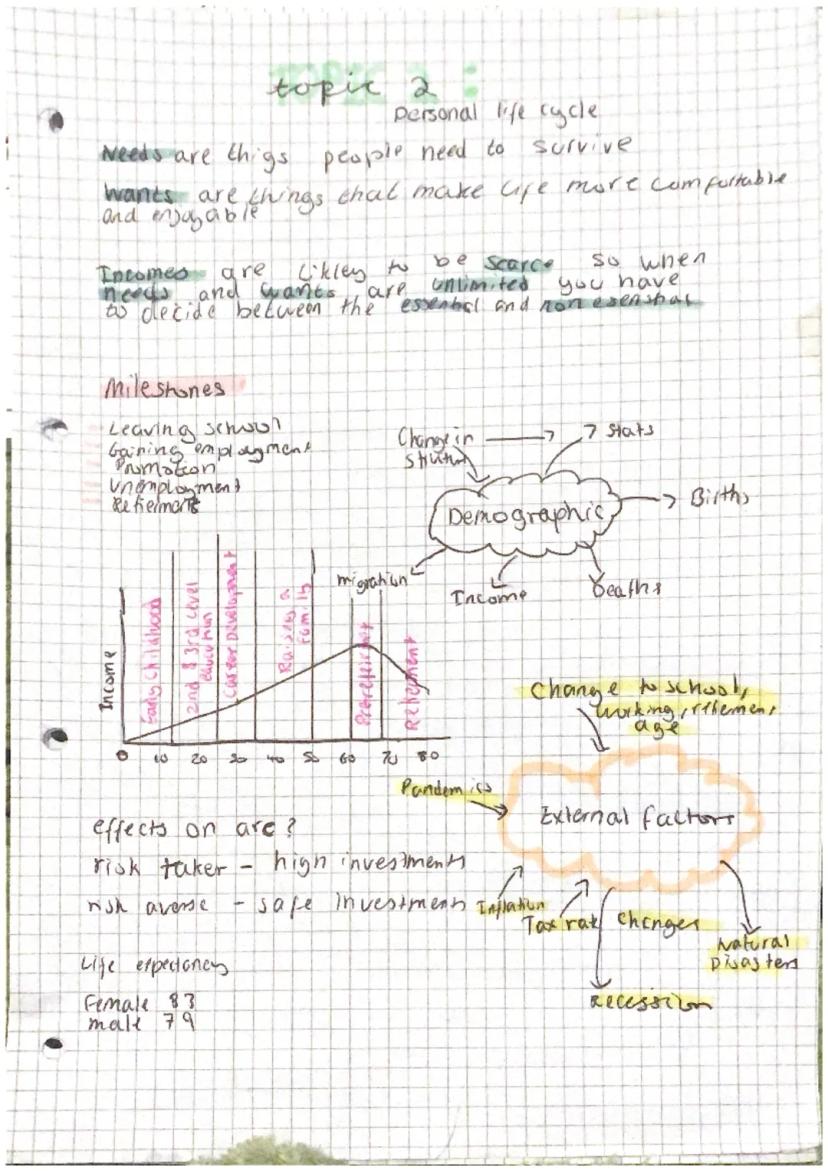 topic 2 :
personal life cycle
Needs are thigs people need to survive
Wants are things that make life more comfortable
and enjoyable
Incomes are likley to be scarce so when
needs and wants are unlimited you have
to decide between the essential and non esenstial
Milestones
Leaving school
Gaining employment
Promotion
Unemployment
Retierment
Change in
Stats
Births
Demographic
migration
Income
Deaths
Income
Early Childhood
2nd & 3rd Level
education
Career Development
Raising a
Family
Preretirement
Retirement
0 10 20 30 40 50 60 70 80
Change to school,
working, retiement
age
Pandemics
External factors
effects on are?
risk taker - high investments
risk averse - safe investments
Inflation
Tax rate changes
Natural
Disasters
Recession
Life expectancy
Female 83
male 79